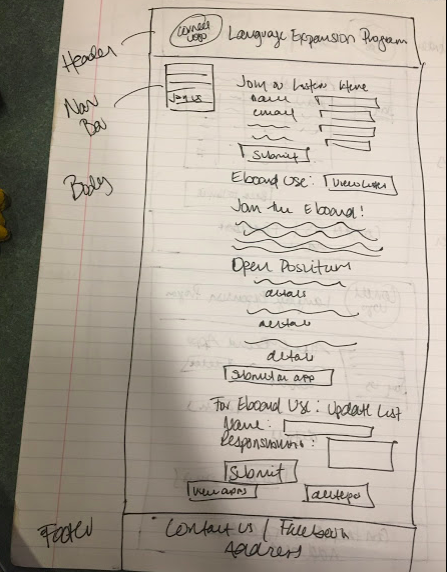 Header
Cornell
Logo
Language Expansion Program
Nav
Bar
Join us
Body
Join a Listserv Here
name
email
Submit
Eboard Use: View Listserv
Join the Eboard!
Open Positions
details
details
details
Submit an app
For Eboard Use: Update List
Name:
Responsibilities:
Submit
View apps
Footer
Contact us / Facebook
Address